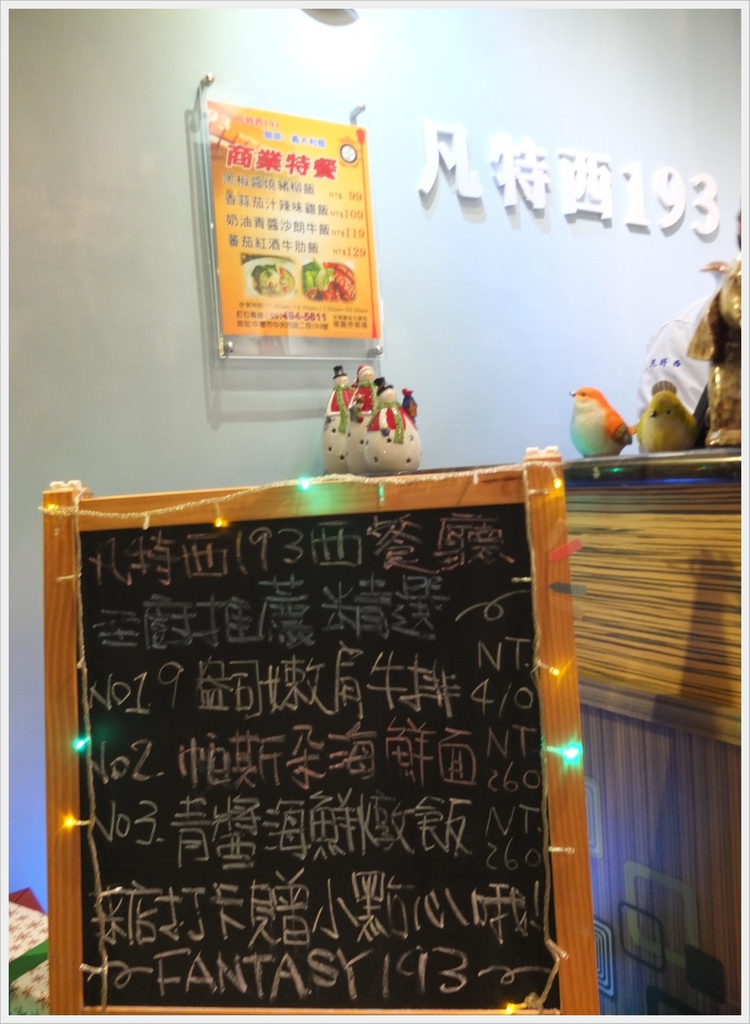 凡特西193
咖啡 義大利麵
商業特餐
黑椒醬燒豬柳飯 NT$ 99
香蒜茄汁辣味雞飯 NT$109
奶油青醬沙朗牛飯 NT$119
蕃茄紅酒牛肋飯 NT$129
494-5611
凡特西193
凡特西
凡特西193西餐廳
主廚推薦精選
No1. 9盎司嫩肩牛排 NT.410
No2. 帕斯朵海鮮面 NT.260
No3. 青醬海鮮燉飯 NT.260
來店打卡贈小點心哦!
~FANTASY193~